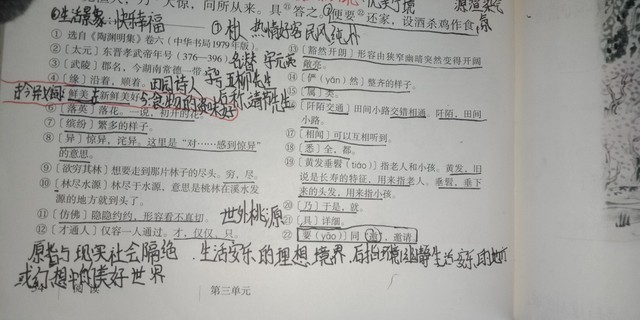 答之。便要还家，设酒杀鸡作食，
生活景象：快乐幸福
热情好客 民风淳朴
① 选自《陶渊明集》卷六（中华书局1979年版）。
② 〔太元〕东晋孝武帝年号（376—396）。
③ 〔武陵〕郡名，今湖南常德一带
④ 〔缘〕沿着，顺着。
田园诗人
五柳先生
古今异义词
⑤ 鲜美 新鲜美好
⑥ 〔落英〕落花。一说，初开的花。
⑦ 〔缤纷〕繁多的样子。
⑧ 〔异〕惊异，诧异。这里是“对……感到惊异”
的意思。
⑨ 〔欲穷其林〕想要走到那片林子的尽头。穷，尽。
⑩ 〔林尽水源〕林尽于水源，意思是桃林在溪水发
源的地方就到头了。
⑪ 〔仿佛〕隐隐约约，形容看不真切。
⑫ 〔才通人〕仅容一人通过。才，仅仅，只。
世外桃源
⑬ 〔豁然开朗〕形容由狭窄幽暗突然变得开阔
敞亮。
⑭ 〔俨（yǎn）然〕整齐的样子。
⑮ 〔属〕类。
⑯ 〔阡陌交通〕田间小路交错相通。阡陌，田间
小路。
⑰ 〔相闻〕可以互相听到。
⑱ 〔悉〕全，都。
⑲ 〔黄发垂髫（tiáo）〕指老人和小孩。黄发，旧
说是长寿的特征，用来指老人。垂髫，垂下
来的头发，用来指小孩。
⑳ 〔乃〕于是，就。
㉑ 〔具〕详细。
㉒ 〔要（yāo）〕同“邀”，邀请。
原指与现实社会隔绝、生活安乐的理想境界，后指环境幽静生活安乐的地方
或幻想中的美好世界
阅读 第三单元